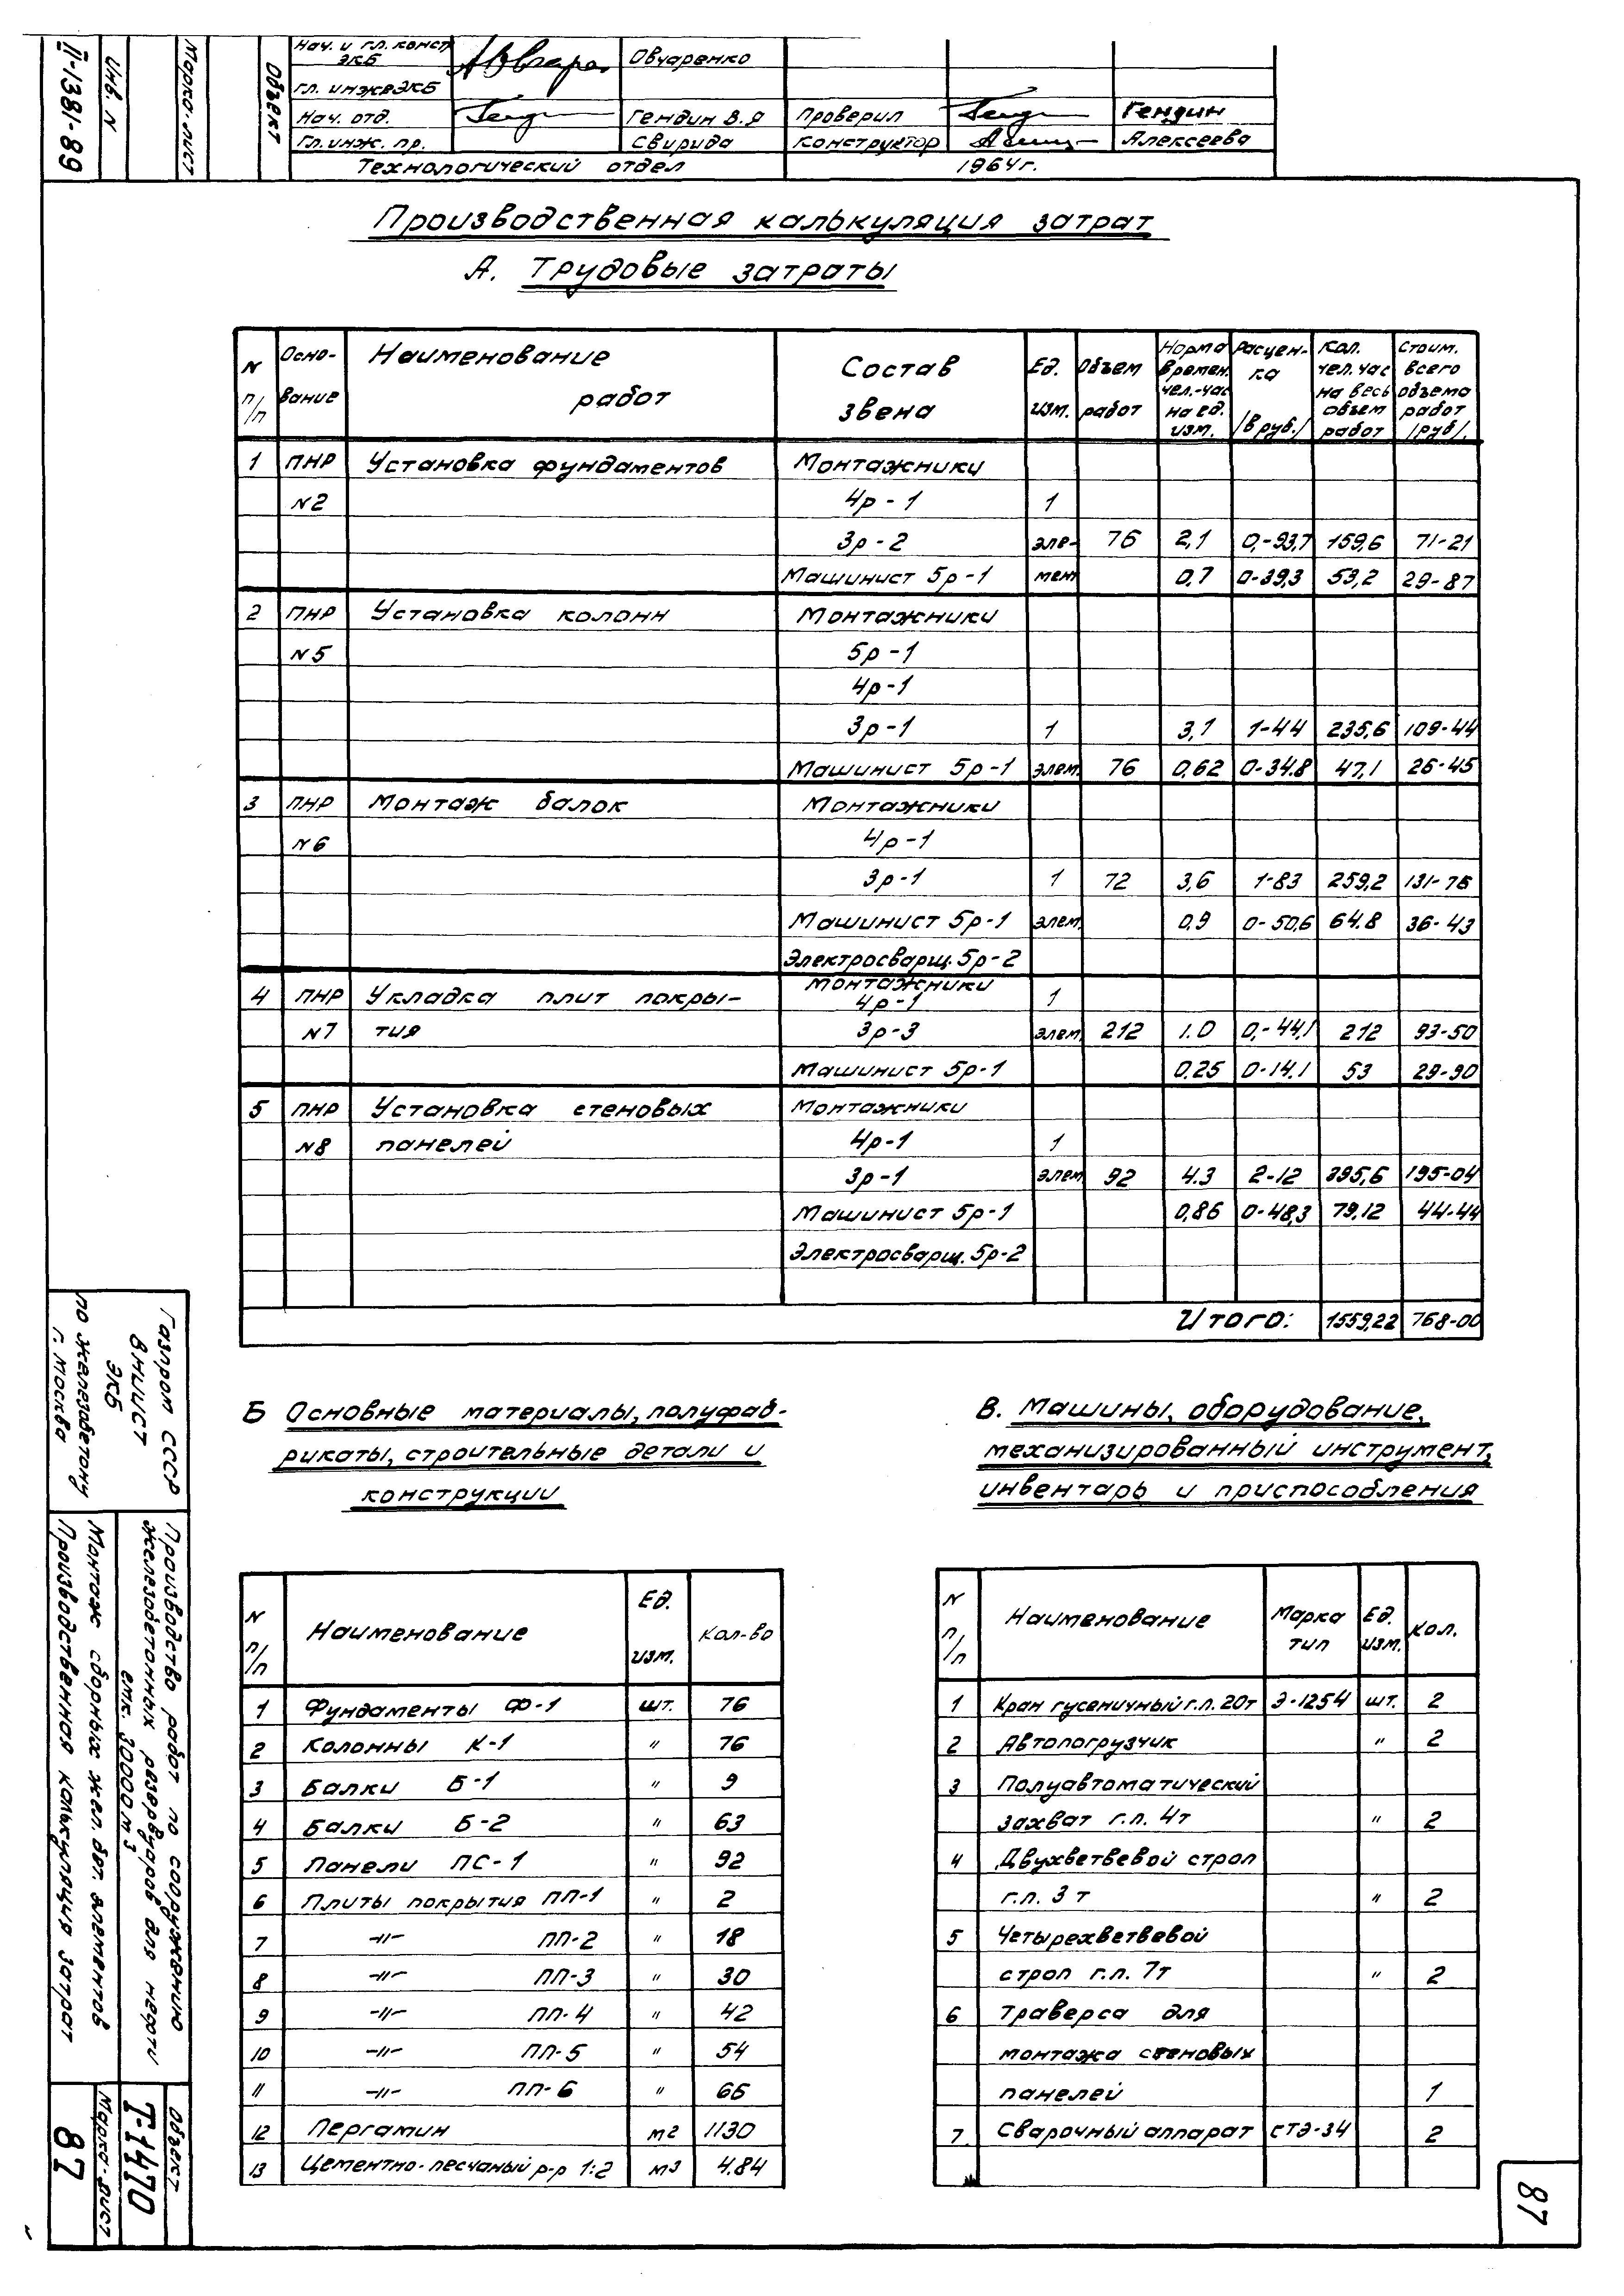 II-1381-89
Инв. N
Марка-лист
Объект
Нач. и гл. конст. ЭКБ Овчаренко
гл. инж. ЭКБ
Нач. отд. Гендин В.Я Проверил Гендин
Гл. инж. пр. Свирида Конструктор Алексеева
Технологический отдел 1964г.
Производственная калькуляция затрат
А. Трудовые затраты
N п/п Основание Наименование работ Состав звена Ед. изм. Объем работ Норма времен. чел.-час на ед. изм. Расценка /в руб./ Кол. чел. час на весь объем работ Стоим. всего объема работ /руб/.
1 ПНР Установка фундаментов Монтажники
N2 4р-1 1
3р-2 эле- 76 2,1 0,-93,7 159,6 71-21
Машинист 5р-1 мент 0,7 0-39,3 53,2 29-87
2 ПНР Установка колонн Монтажники
N5 5р-1
4р-1
3р-1 1 3,1 1-44 235,6 109-44
Машинист 5р-1 элем. 76 0,62 0-34.8 47,1 26-45
3 ПНР Монтаж балок Монтажники
N6 4р-1
3р-1 1 72 3,6 1-83 259,2 131-76
Машинист 5р-1 элем. 0,9 0-50,6 64.8 36-43
Электросварщ. 5р-2
4 ПНР Укладка плит покры- Монтажники 4р-1 1
N7 тия 3р-3 элем. 212 1.0 0,-44,1 212 93-50
Машинист 5р-1 0.25 0-14.1 53 29-90
5 ПНР Установка стеновых Монтажники
N8 панелей 4р-1 1
3р-1 элем 92 4.3 2-12 395,6 195-04
Машинист 5р-1 0,86 0-48,3 79,12 44-44
Электросварщ. 5р-2
Итого: 1559,22 768-00
Б Основные материалы, полуфаб-
рикаты, строительные детали и
конструкции
N п/п Наименование Ед. изм. Кол-во
1 Фундаменты Ф-1 шт. 76
2 Колонны К-1 " 76
3 Балки Б-1 " 9
4 Балки Б-2 " 63
5 Панели ПС-1 " 92
6 Плиты покрытия ПП-1 " 2
7 -"- ПП-2 " 18
8 -"- ПП-3 " 30
9 -"- ПП-4 " 42
10 -"- ПП-5 " 54
11 -"- ПП-6 " 66
12 Пергамин м2 1130
13 Цементно-песчаный р-р 1:2 м3 4.84
В. Машины, оборудование,
механизированный инструмент,
инвентарь и приспособления
N п/п Наименование Марка тип Ед. изм. Кол.
1 Кран гусеничный г.п. 20т Э-1254 шт. 2
2 Автопогрузчик " 2
3 Полуавтоматический
захват г.п. 4т " 2
4 Двухветвевой строп
г.п. 3 т " 2
5 Четырехветвевой
строп г.п. 7т " 2
6 Траверса для
монтажа стеновых
панелей 1
7. Сварочный аппарат СТЭ-34 2
Газпром СССР
ВНИИСТ
ЭКБ
по железобетону
г. Москва
Производство работ по сооружению
железобетонных резервуаров для нефти
емк. 30000 м3
Монтаж сборных жел. бет. элементов
Производственная калькуляция затрат
Объект
Т-1470
Марка-лист
87
87